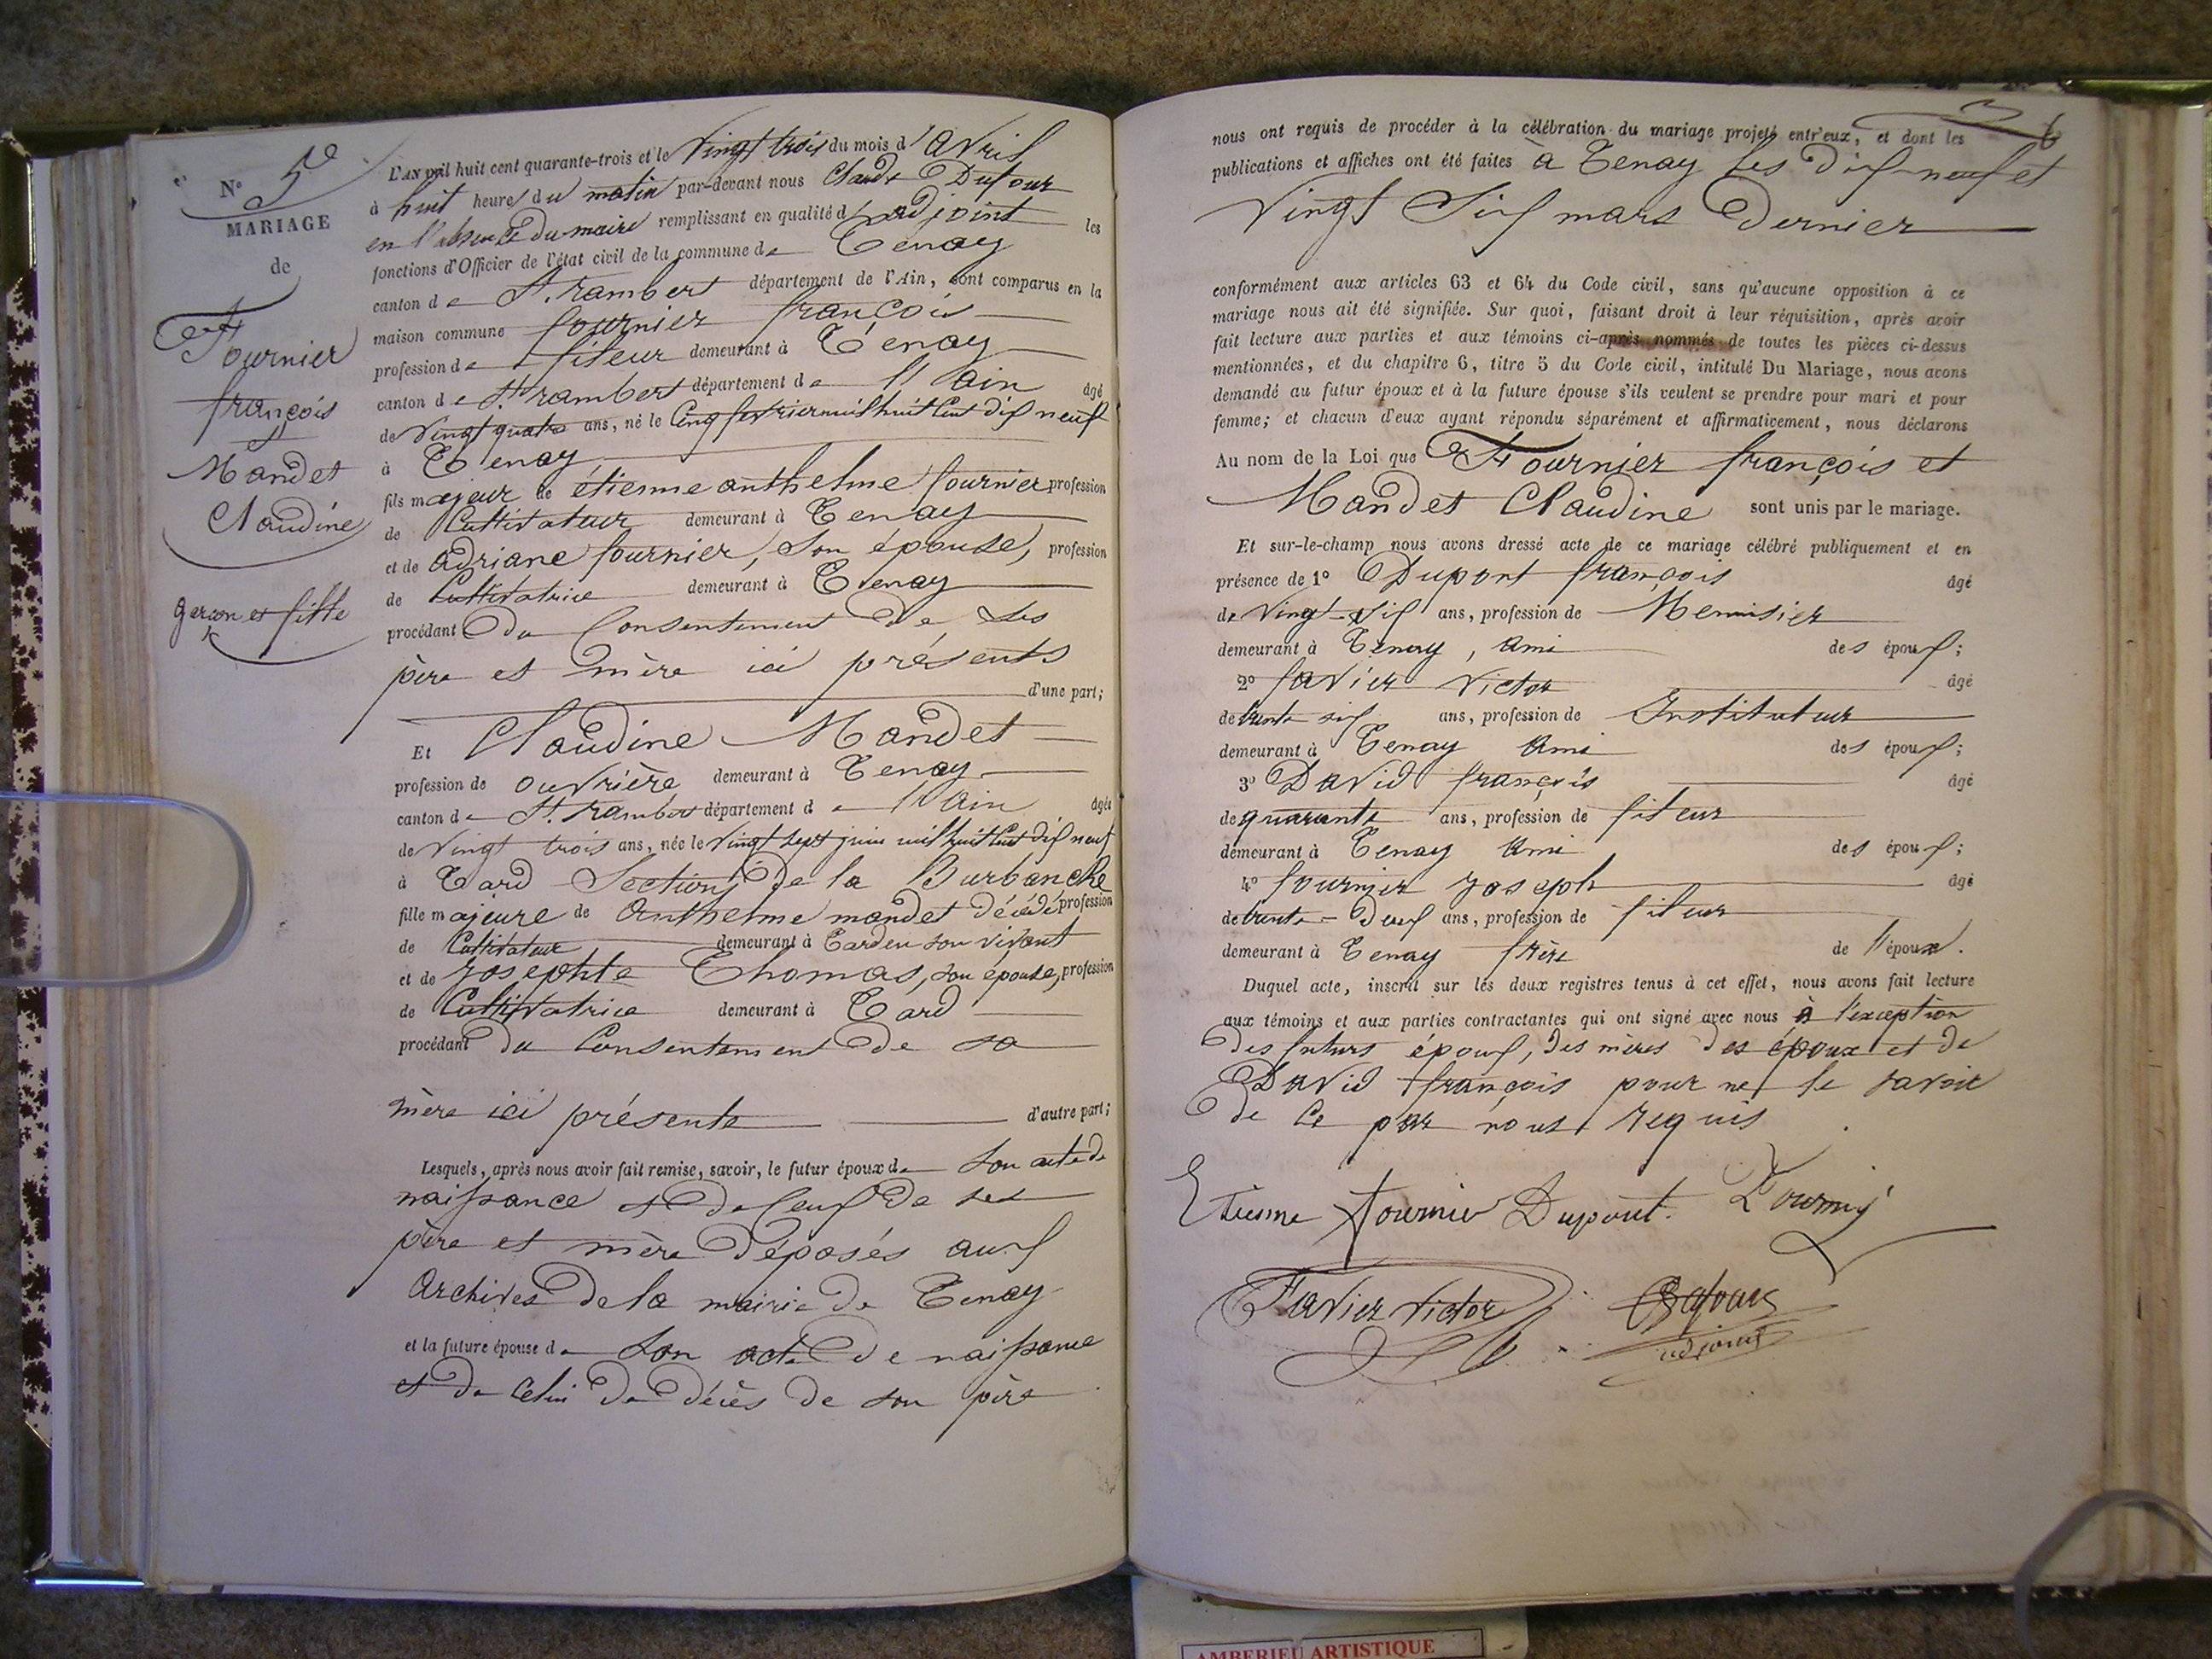 N° 5e
MARIAGE
de
Fournier
françois
et
Mandet
Claudine
garçon et fille
L'AN mil huit cent quarante-trois et le Vingt trois du mois d'avril
à huit heure du matin par-devant nous Claude Dufour
en l'absence du maire remplissant en qualité d'adjoint les
fonctions d'Officier de l'état civil de la commune de Tenay
canton de St. rambert département de l'Ain, sont comparus en la
maison commune fournier françois
profession de fileur demeurant à Tenay
canton de St. rambert département de l'ain âgé
de Vingt quatre ans, né le Cinq fevrier mil huit Cent dix neuf
à Tenay
fils majeur de étienne anthelme fournier profession
de Cultivateur demeurant à Tenay
et de adriane fournier, son épouse, profession
de Cultivatrice demeurant à Tenay
procédant Du Consentement de ses
père et mère ici présents
d'une part;
Et Claudine Mandet
profession de ouvrière demeurant à Tenay
canton de St. rambert département de l'ain âgée
de Vingt trois ans, née le Vingt sept juin mil huit Cent dix neuf
à Tard Section de la Burbanche
fille majeure de anthelme mandet décédé profession
de Cultivateur demeurant à Tard en son vivant
et de josephte Thomas, son épouse, profession
de Cultivatrice demeurant à Tard
procédant du Consentement de sa
mère ici présente d'autre part;
Lesquels, après nous avoir fait remise, savoir, le futur époux de son acte de
naissance et de Ceux de ses
père et mère Déposés aux
Archives de la mairie de Tenay
et la future épouse de son acte de naissance
et de Celui de décès de son père
nous ont requis de procéder à la célébration du mariage projeté entr'eux, et dont les
publications et affiches ont été faites à Tenay les dix-neuf et
Vingt Six mars Dernier
conformément aux articles 63 et 64 du Code civil, sans qu'aucune opposition à ce
mariage nous ait été signifiée. Sur quoi, faisant droit à leur réquisition, après avoir
fait lecture aux parties et aux témoins ci-après nommés de toutes les pièces ci-dessus
mentionnées, et du chapitre 6, titre 5 du Code civil, intitulé Du Mariage, nous avons
demandé au futur époux et à la future épouse s'ils veulent se prendre pour mari et pour
femme; et chacun d'eux ayant répondu séparément et affirmativement, nous déclarons
Au nom de la Loi que Fournier françois et
Mandet Claudine sont unis par le mariage.
Et sur-le-champ nous avons dressé acte de ce mariage célébré publiquement et en
présence de 1° Dupont françois âgé
de Vingt-Six ans, profession de Menuisier
demeurant à Tenay, ami des époux;
2° favier Victor âgé
de trente six ans, profession de Instituteur
demeurant à Tenay ami des époux;
3° David françois âgé
de quarante ans, profession de fileur
demeurant à Tenay ami des époux;
4° fournier joseph âgé
de trente-Deux ans, profession de fileur
demeurant à Tenay frère de l'époux.
Duquel acte, inscrit sur les deux registres tenus à cet effet, nous avons fait lecture
aux témoins et aux parties contractantes qui ont signé avec nous à l'exception
Des futurs époux, des mères des époux et de
David françois pour ne le savoir
De Ce par nous requis
Etienne fournier Dupont. fournier
Favier Victor
adjoint
AMBERIEU ARTISTIQUE